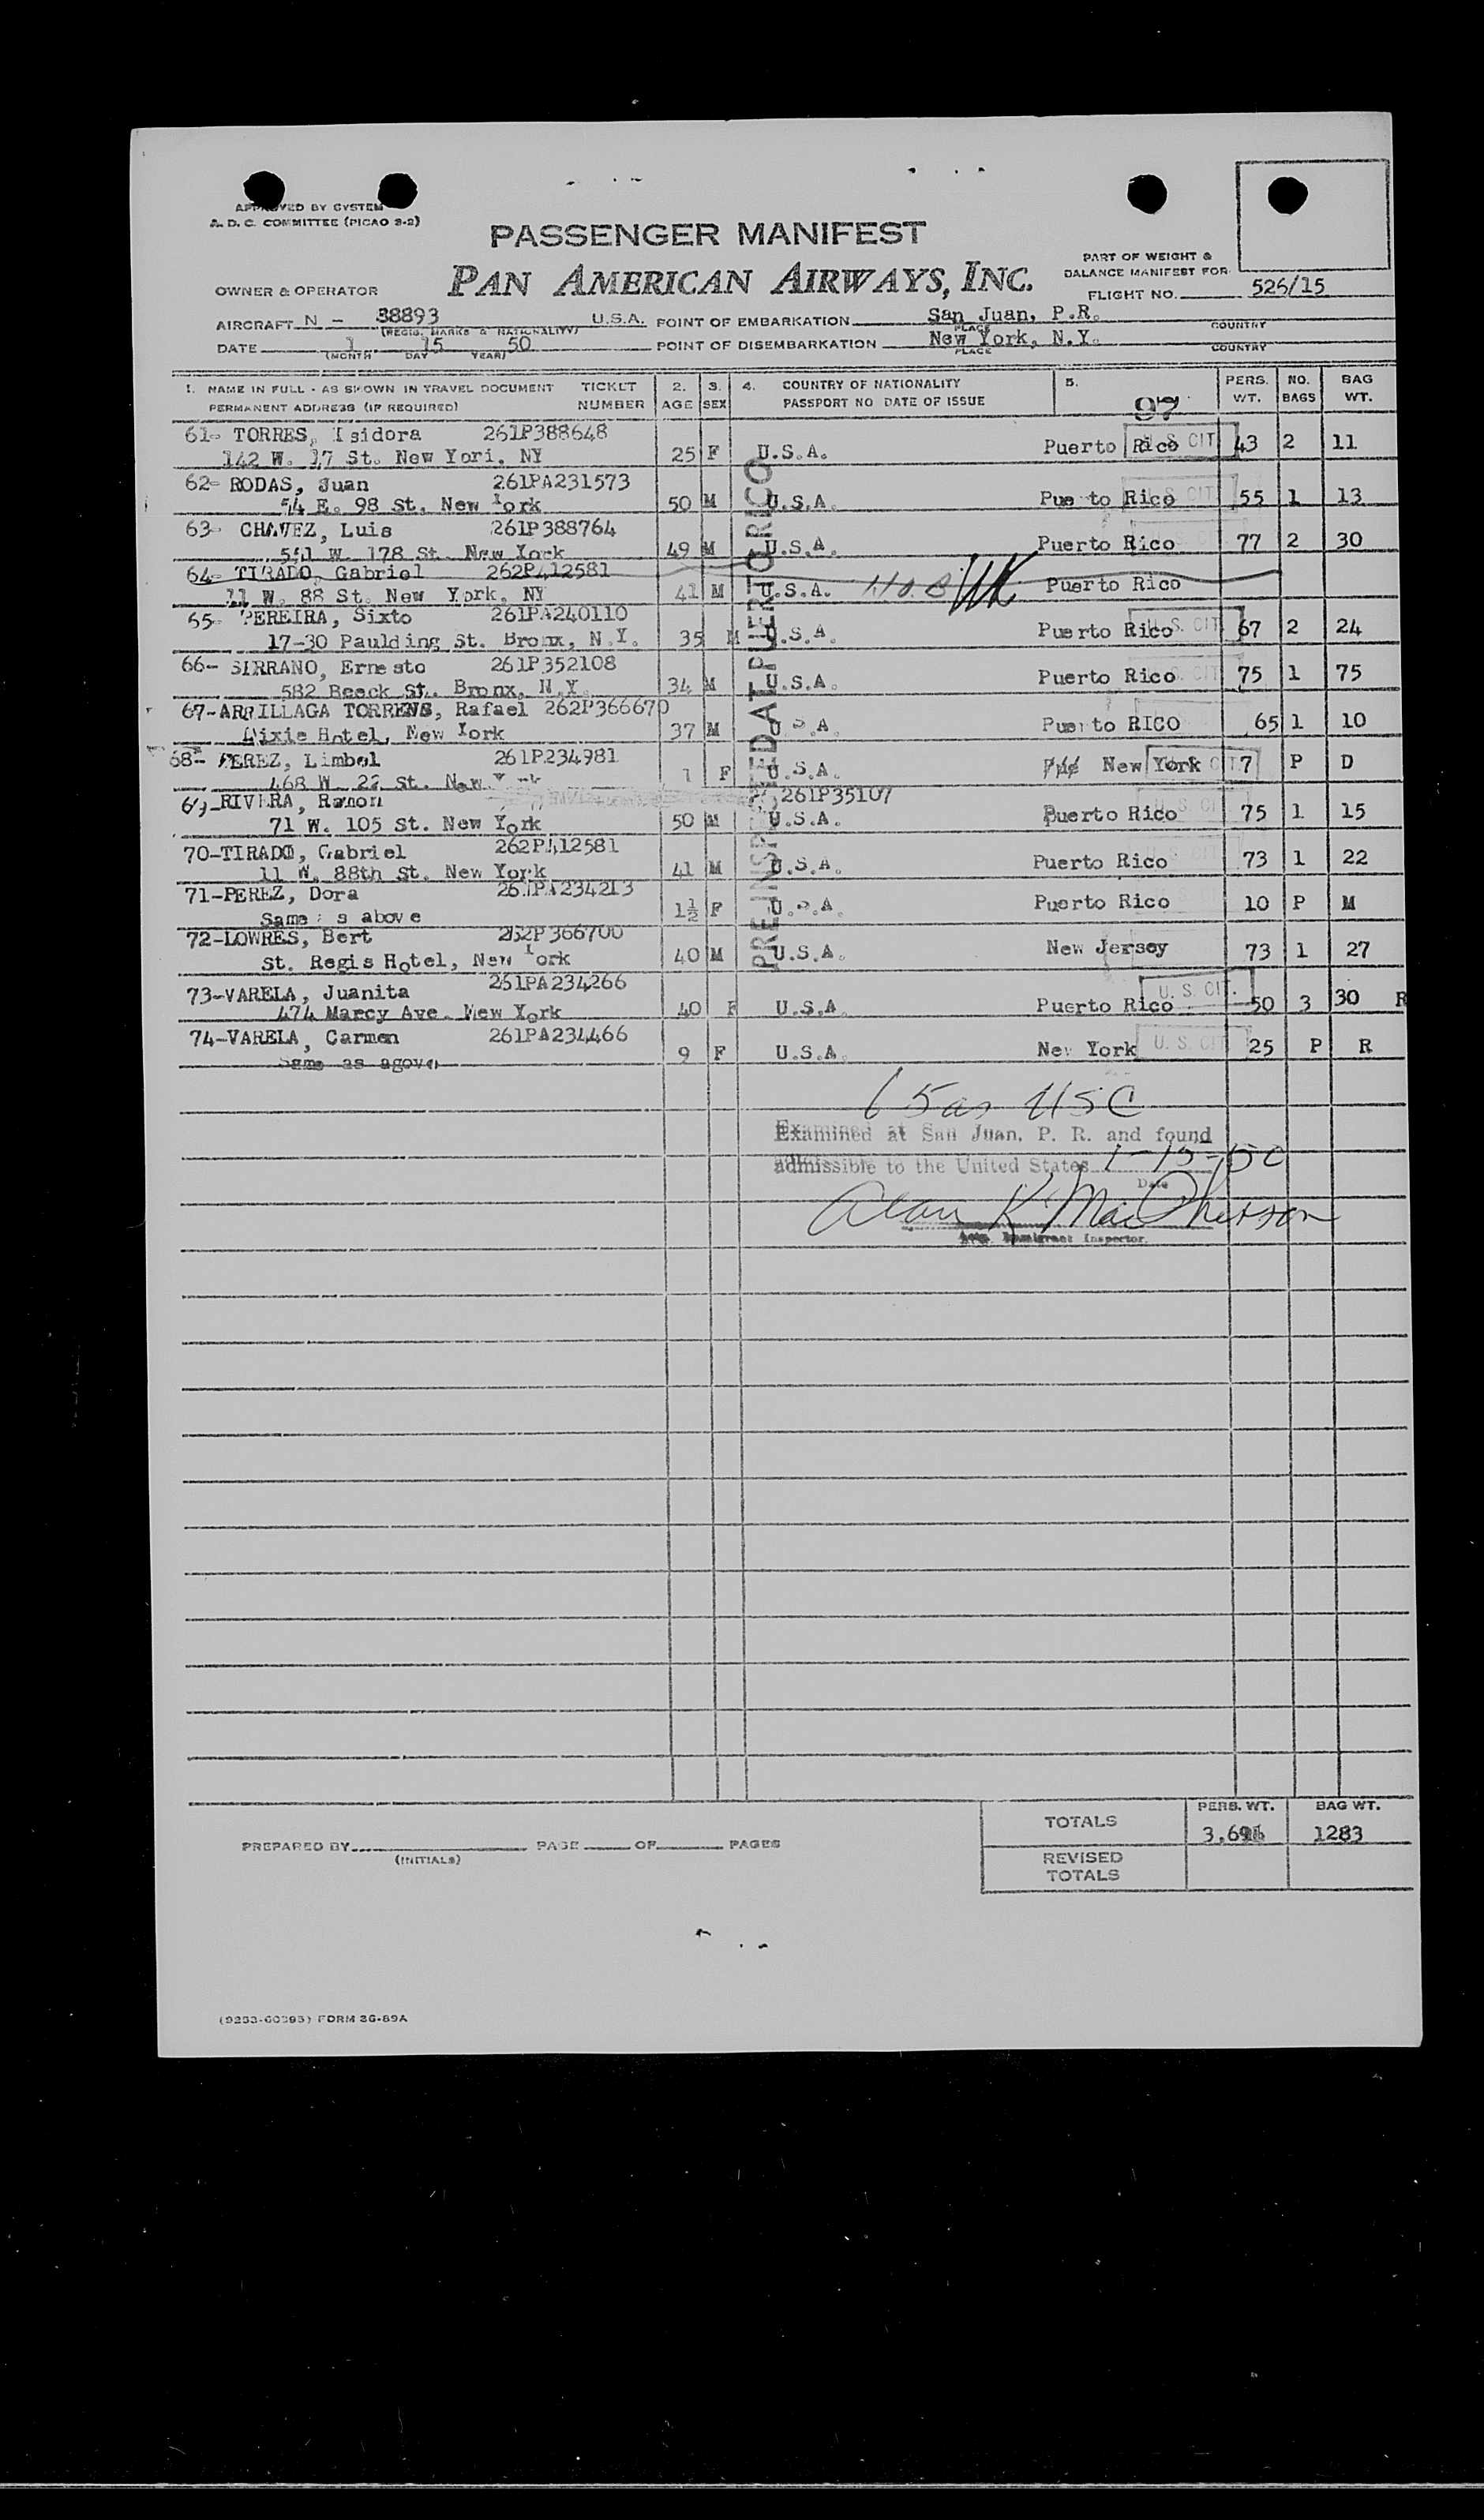 APPROVED BY SYSTEM
A. D. C. COMMITTEE (PICAO 2-2)
PASSENGER MANIFEST
PAN AMERICAN AIRWAYS, INC.
PART OF WEIGHT &
BALANCE MANIFEST FOR
OWNER & OPERATOR
FLIGHT NO. 526/15
AIRCRAFT N - 38893 U.S.A. POINT OF EMBARKATION San Juan, P.R.
(REGIS. MARKS & NATIONALITY) PLACE COUNTRY
DATE 1 15 50 POINT OF DISEMBARKATION New York, N.Y.
(MONTH DAY YEAR) PLACE COUNTRY
1. NAME IN FULL - AS SHOWN IN TRAVEL DOCUMENT TICKET 2. 3. 4. COUNTRY OF NATIONALITY 5. PERS. NO. BAG
PERMANENT ADDRESS (IF REQUIRED) NUMBER AGE SEX PASSPORT NO DATE OF ISSUE 97 WT. BAGS WT.
61- TORRES, Isidora 261P388648
142 W. 17 St. New Yori, NY 25 F U.S.A. Puerto Rico U. S. CIT. 43 2 11
62- RODAS, Juan 261PA231573
54 E. 98 St. New York 50 M U.S.A. Puerto Rico U. S. CIT. 55 1 13
63- CHAVEZ, Luis 261P388764
551 W. 178 St. New York 49 M U.S.A. Puerto Rico 77 2 30
64- TIRADO, Gabriel 262P412581
11 W. 88 St. New York, NY 41 M U.S.A. Puerto Rico
65- PEREIRA, Sixto 261PA240110
17-30 Paulding St. Bronx, N.Y. 35 M U.S.A. Puerto Rico U. S. CIT. 67 2 24
66- SERRANO, Ernesto 261P352108
582 Beack St. Bronx, N.Y. 34 M U.S.A. Puerto Rico 75 1 75
67-ARRILLAGA TORRENS, Rafael 262P366670
Dixie Hotel, New York 37 M U.S.A. Puerto RICO 65 1 10
68- PEREZ, Limbel 261P234981
468 W 22 St. New York 1 F U.S.A. New York 7 P D
69-RIVERA, Ramon 261P35107
71 W. 105 St. New York 50 M U.S.A. Puerto Rico 75 1 15
70-TIRADO, Gabriel 262P412581
11 W. 88th St. New York 41 M U.S.A. Puerto Rico 73 1 22
71-PEREZ, Dora 261PA234213
Same as above 1½ F U.S.A. Puerto Rico 10 P M
72-LOWRES, Bert 262P366700
St. Regis Hotel, New York 40 M U.S.A. New Jersey 73 1 27
73-VARELA, Juanita 261PA234266
474 Marcy Ave. New York 40 F U.S.A. Puerto Rico U. S. CIT. 50 3 30 R
74-VARELA, Carmen 261PA234466
Same as agove 9 F U.S.A. New York U. S. CIT. 25 P R
PRE-INSPECTED AT PUERTO RICO
15 as USC
Examined at San Juan, P. R. and found
admissible to the United States 1-15-50
Date
Alan K. MacPherson
Immigrant Inspector.
TOTALS PERS. WT. BAG WT.
1283
PREPARED BY PAGE OF PAGES
(INITIALS)
REVISED
TOTALS
(9253-60395) FORM 36-89A